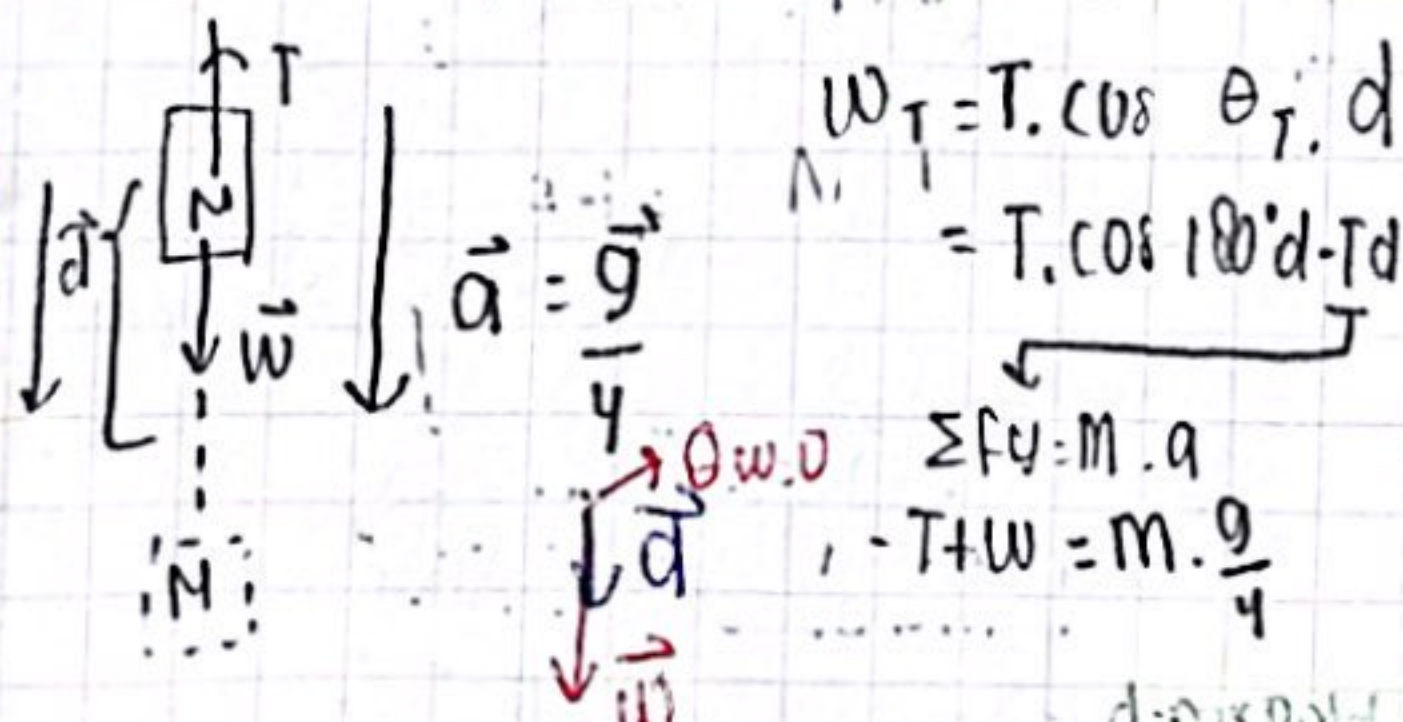 T
N
d⃗
w⃗
a⃗ = g⃗/4
M
θ w. 0
d⃗
w⃗
W_T = T. cos θ_T. d
= T. cos 180° d - Td
ΣFy = m . a
- T + W = m . g/4